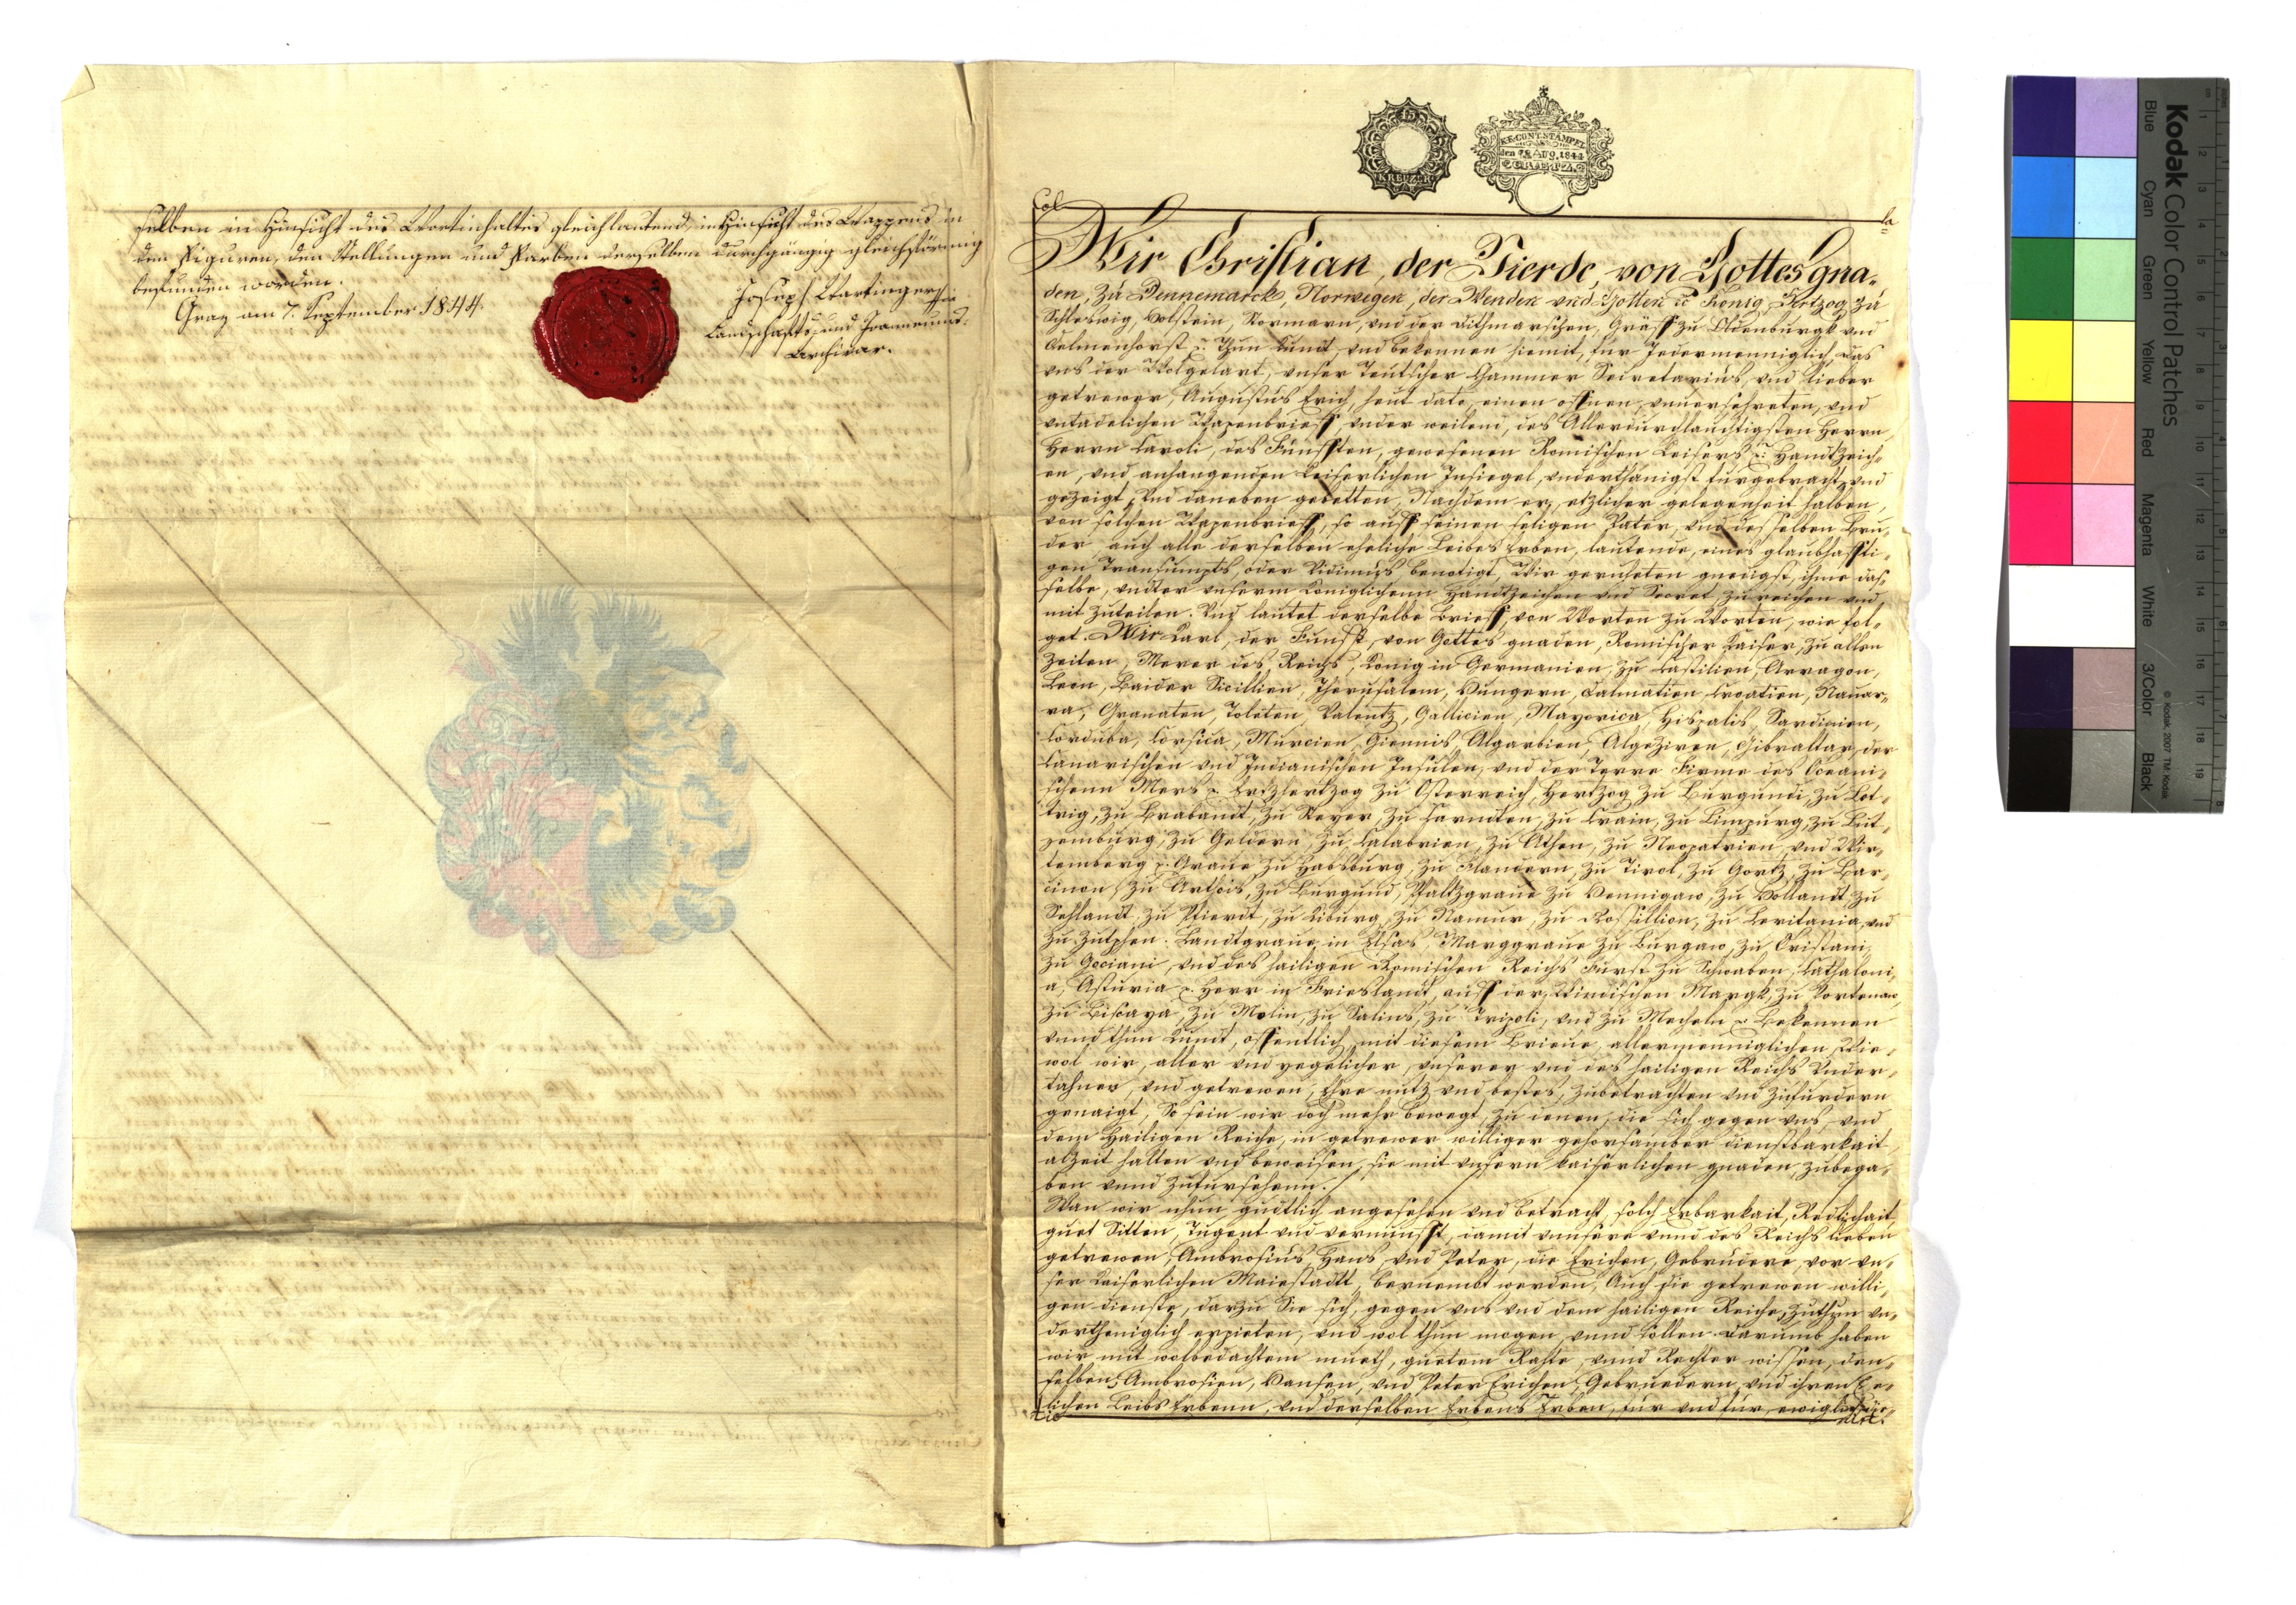 selben in Hinsicht des Wortinhaltes gleichlautend, in Hinsicht des Wappens in
den Figuren, den Stellungen und Farben derselben durchgängig gleichförmig
befunden worden.
Graz am 7. September 1844.
Joseph Wartinger
Landschafts- und Joanneums-
Archivar.
15
KREUZER
K.K. CONT. STÄMPEL
den 28 Aug. 1844
GRAETZ
Col
la
Wir Christian, der Vierde, von Gottes gna-
den, zu Dennemarck, Norwegen, der Wenden vnd Gotten König, Hertzog zu
Schleswig, Holstein, Stormarn, vnd der Dithmarschen, Gräff zu Oldenburgk vnd
Delmenhorst Thun kundt, vnd bekennen hiemit, für Jedermenniglich, das
vns der Wolgelart, vnser Teutscher Cammer Secretarius, vnd lieber
getrewer, Augustus Erich, heut dato, einen offnen, vnuersehreten, vnd
vntadelichen Wapenbrieff, vnder weilend, des Allerdurchlauchtigsten Herrn,
Herrn Caroli, des Fünfften, gewesenen Romischen Keisers Handtzeich-
en, vnd anhangenden Keiserlichen Insiegel, vnderthänigst furgebracht, vnd
gezeigt, Vnd daneben gebetten, Nachdem er, etzlicher gelegenheit halben,
von solchen Wapenbrieff, so auff seinen seligen Vater, vnd desselben Bru-
der, auch alle derselben eheliche Leibes Erben, lautende, eines glaubhaffti-
gen Transumpts, oder Vidimus benotigt, Wir geruheten gnedigst, ihme das-
selbe, vndter vnserm Königlichenn Handtzeichen vnd Secret, zu reichen vnd
mit zuteilen. Vnd lautet derselbe Brieff, von Worten zu Worten, wie fol-
get. Wir Carl, der Funfft, von Gottes gnaden, Romischer Kaiser, zu allen
Zeiten, Merer des Reichs, Konig in Germanien, zu Castilien, Arragon,
Leon, Baider Sicillien, Jherusalem, Hungern, Dalmatien, Croatien, Nauar-
ra, Granaten, Toleten, Valentz, Gallicien, Mayorica, Hispalis, Sardinien,
Corduba, Corsica, Murcien, Giennis, Algarbien, Algeziren, Gibraltar, der
Canarischen vnd Indianischen Insulen, vnd der Terre Firme des Oceani-
schenn Mers Ertzhertzog zu Osterreich, Hertzog zu Burgundi, zu Lot-
trig, zu Brabandt, zu Steyer, zu Carndten, zu Crain, zu Limpurg, zu Lut-
zemburg, zu Geldern, zu Calabrien, zu Athen, zu Neopatrien, vnd Wir-
temberg Graue zu Habsburg, zu Flandern, zu Tirol, zu Gortz, zu Bar-
cinon, zu Arthois, zu Burgund, Phaltzgraue zu Hennigaw, zu Hollandt, zu
Sehlandt, zu Phierdt, zu Kiburg, zu Namur, zu Rossillion, zu Ceritania, vnd
zu Zutphen. Landtgraue in Elsas, Marggraue zu Burgaw, zu Oristani,
zu Gociani, vnd des hailigen Romischen Reichs Furst, zu Schwaben, Cathaloni-
a, Asturia Herr in Frieslandt, auff der Windischen Margk, zu Portenaw,
zu Biscaya, zu Molin, zu Salins, zu Tripoli, vnd zu Mecheln Bekennen
vnnd thun kundt, offentlich, mit diesem Brieue, allermenniglichen, Wie-
wol wir, aller vnd yegelicher, vnserer vnd des hailigen Reichs Vnder-
tahnen, vnd getrewen, Ehre nutz vnd bestes, zubetrachten vnd zufurdern
genaigt, So sein wir doch mehr bewegt, zu denen, die sich gegen vns, vnd
dem Hailigen Reiche, in getrewer williger gehorsamber dienstbarkait,
alzeit halten vnd beweisen, sie mit vnsern kaiserlichen gnaden, zubega-
ben vnnd zufursehenn.
Wan wir nhun gudtlich angesehen vnd betracht, solch Erbarkait, Redlichait,
guet Sitten, Tugent vnd vernunfft, damit vnnsere vnnd des Reichs lieben
getrewen, Ambrosius, Hans, vnd Peter, die Erichen, Gebrudere, vor vn-
ser Kaiserlichen Maiestadtt, berumbt werden, Auch die getrewen willi-
gen dienste, darzu Sie sich, gegen vns vnd dem hailigen Reiche, zuthun vn-
dertheniglich erpieten, vnd wol thun mogen, vnnd sollen. Darumb haben
wir mit wolbedachtem mueth, guetem Rahte, vnnd Rechter wissen, den-
selben, Ambrosien, Hansen, vnd Peter Erichen, Gebruedern, vnd ihren Ee-
lichen Leibs Erbenn, vnd derselben Erbens Erben, fur vnd fur, ewiglich
tio